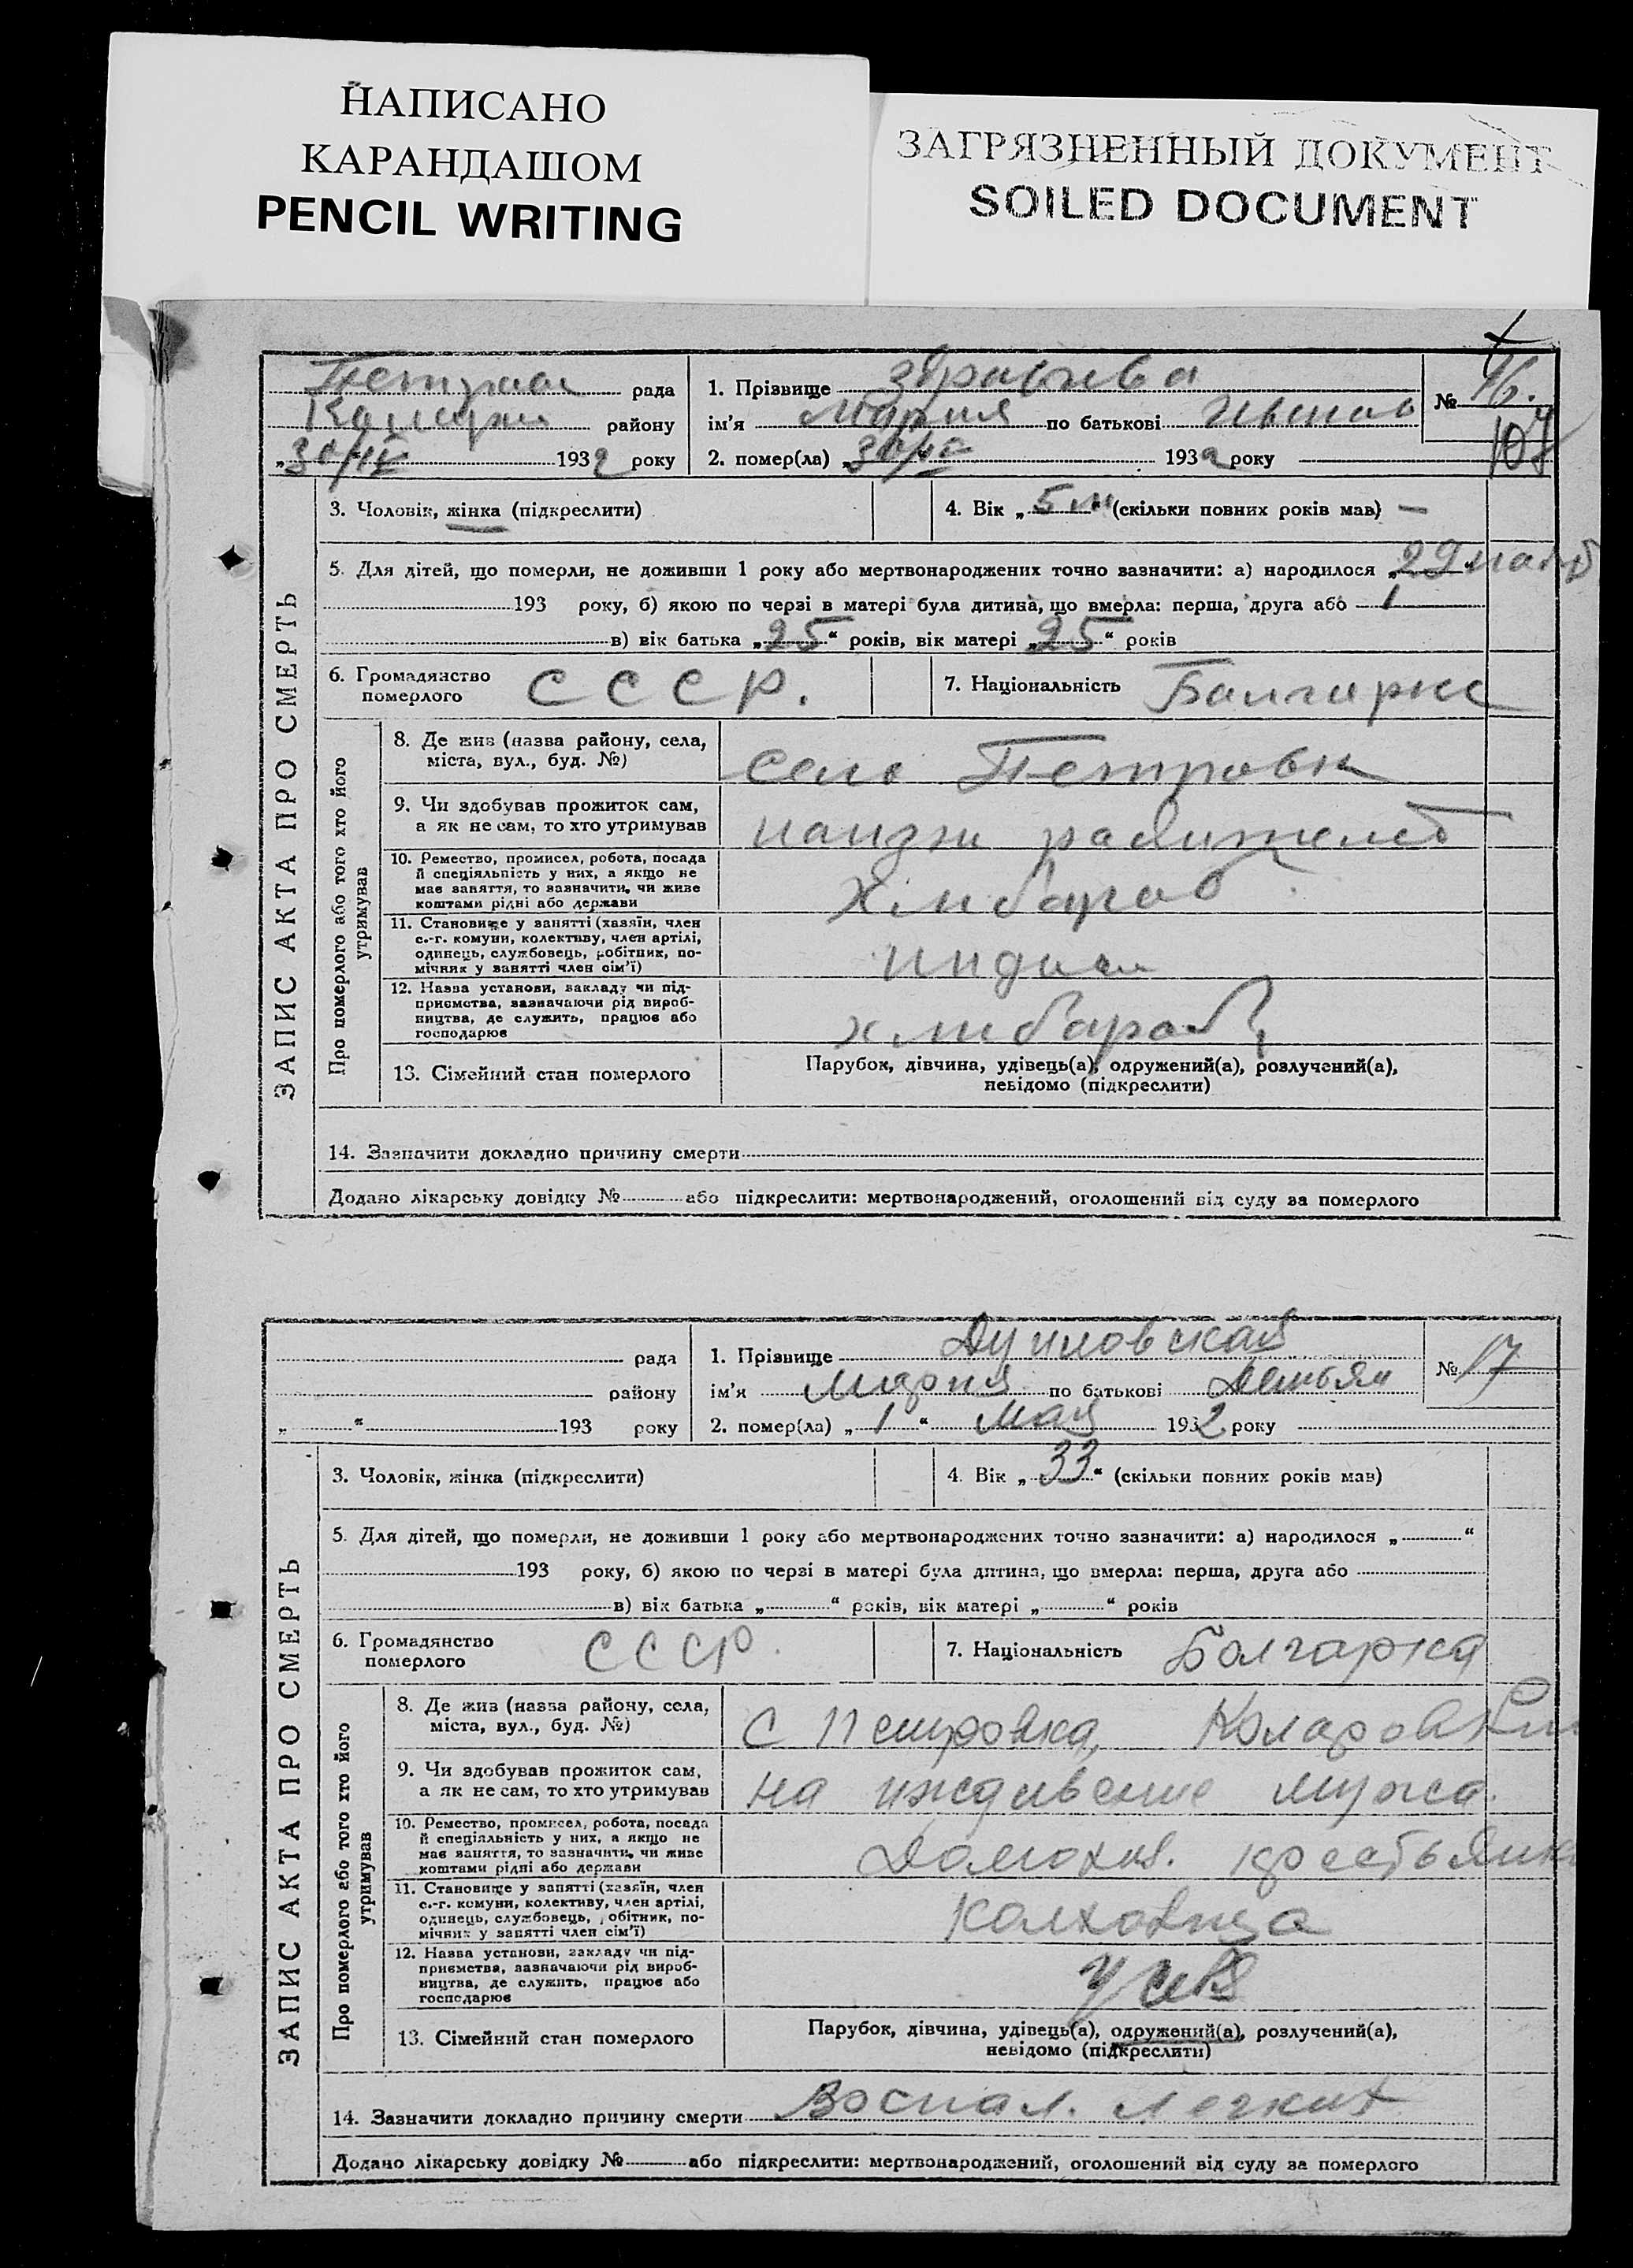 НАПИСАНО
КАРАНДАШОМ
PENCIL WRITING
ЗАГРЯЗНЕННЫЙ ДОКУМЕНТ
SOILED DOCUMENT
ЗАПИС АКТА ПРО СМЕРТЬ
рада
району
1932 року
1. Прізвище
ім'я Мария по батькові
2. помер(ла) 1932 року
№ 16.
3. Чоловік, жінка (підкреслити)
4. Вік „5 м“ (скільки повних років мав) —
5. Для дітей, що померли, не доживши 1 року або мертвонароджених точно зазначити: а) народилося „29
193 року, б) якою по черзі в матері була дитина, що вмерла: перша, друга або 1
в) вік батька „25“ років, вік матері „25“ років
6. Громадянство
померлого СССР.
7. Національність Балгарка
Про померлого або того хто його
утримував
8. Де жив (назва району, села,
міста, вул., буд. №)
село Петровка
9. Чи здобував прожиток сам,
а як не сам, то хто утримував
10. Ремество, промисел, робота, посада
й спеціяльність у них, а якщо не
має заняття, то зазначити, чи живе
коштами рідні або держави
11. Становище у занятті (хазяїн, член
с.-г. комуни, колективу, член артілі,
одинець, службовець, робітник, по-
мічник у занятті член сім'ї)
12. Назва установи, закладу чи під-
приємства, зазначаючи рід вироб-
ництва, де служить, працює або
господарює
13. Сімейний стан померлого
Парубок, дівчина, удівець(а), одружений(а), розлучений(а),
невідомо (підкреслити)
14. Зазначити докладно причину смерти
Додано лікарську довідку № або підкреслити: мертвонароджений, оголошений від суду за померлого
ЗАПИС АКТА ПРО СМЕРТЬ
рада
району
„ “ 193 року
1. Прізвище
ім'я Мария по батькові Демьян
2. помер(ла) „1“ Мая 1932 року
№ 17
3. Чоловік, жінка (підкреслити)
4. Вік „33“ (скільки повних років мав)
5. Для дітей, що померли, не доживши 1 року або мертвонароджених точно зазначити: а) народилося „ “
193 року, б) якою по черзі в матері була дитина, що вмерла: перша, друга або
в) вік батька „ “ років, вік матері „ “ років
6. Громадянство
померлого СССР.
7. Національність Болгарка
Про померлого або того хто його
утримував
8. Де жив (назва району, села,
міста, вул., буд. №)
с Петровка, Коларовски
9. Чи здобував прожиток сам,
а як не сам, то хто утримував
на иждивение мужа.
10. Ремество, промисел, робота, посада
й спеціяльність у них, а якщо не
має заняття, то зазначити, чи живе
коштами рідні або держави
Домохоз. крестьянка
11. Становище у занятті (хазяїн, член
с.-г. комуни, колективу, член артілі,
одинець, службовець, робітник, по-
мічник у занятті член сім'ї)
Колхозница
12. Назва установи, закладу чи під-
приємства, зазначаючи рід вироб-
ництва, де служить, працює або
господарює
13. Сімейний стан померлого
Парубок, дівчина, удівець(а), одружений(а), розлучений(а),
невідомо (підкреслити)
14. Зазначити докладно причину смерти Воспал. легких
Додано лікарську довідку № або підкреслити: мертвонароджений, оголошений від суду за померлого